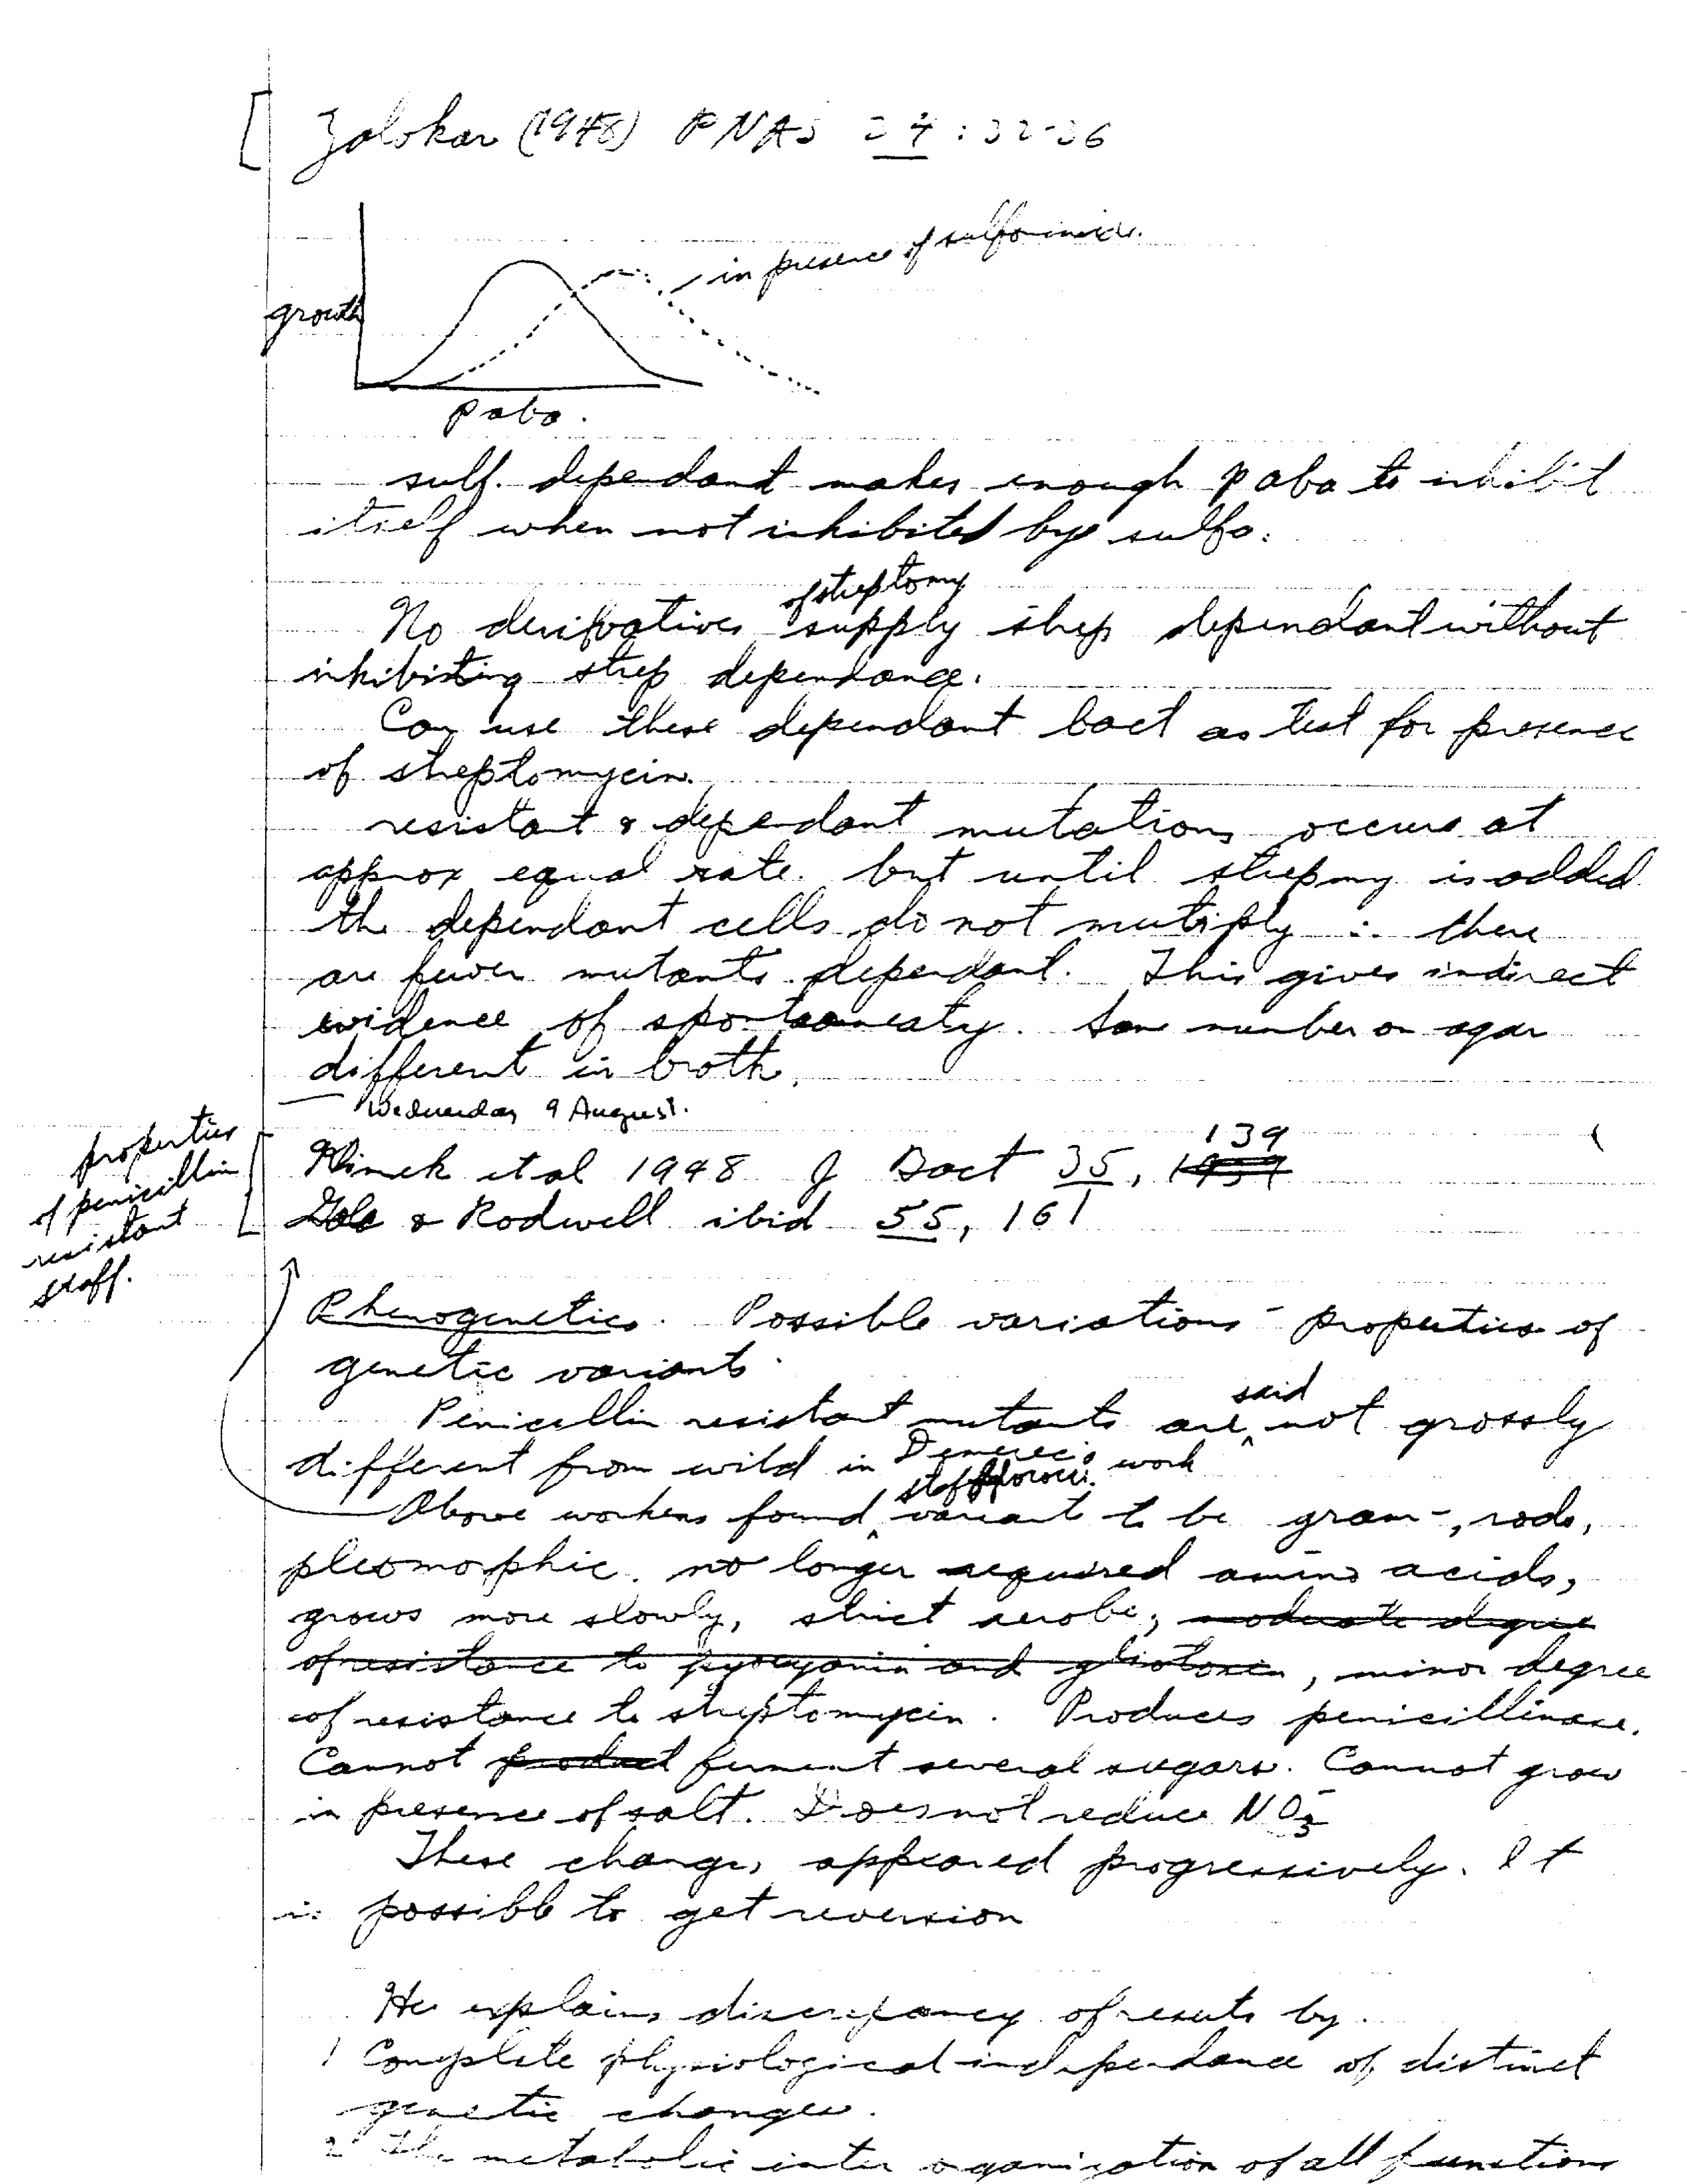 [ Zalokar (1948) PNAS 34: 32-36
in presence of sulfonimide.
growth
paba.
sulf. dependant makes enough paba to inhibit
itself when not inhibited by sulfa.
of streptomy
No derivatives supply strep dependant without
inhibiting strep dependance.
Can use these dependant bact as test for presence
of streptomycin.
resistant & dependant mutations occurs at
approx equal rate. but until strepmy is added
the dependant cells do not multiply ∴ there
are fewer mutants dependant. This gives indirect
evidence of spontaneaty. Same number on agar
different in broth.
Wednesday 9 August.
properties
of penicillin
resistant
staff.
139
Klimek et al 1948 J Bact 35, 1939
& Rodwell ibid 55, 161
Phenogenetics. Possible variations - properties of
genetic variants.
said
Penicillin resistant mutants are ^ not grossly
different from wild in Demerec's work
stafflococci.
Above workers found ^ variant to be gram -, rods,
pleomorphic. no longer required amino acids,
grows more slowly, strict aerobe, moderate degree
of resistance to pyocyanin and gliotoxin, minor degree
of resistance to streptomycin. Produces penicillinase.
Cannot product ferment several sugars. Cannot grow
in presence of salt. Does not reduce NO3-
These changes appeared progressively. It
is possible to get reversion
He explains discrepancy of results by.
1 Complete physiological independance of distinct
genetic changes.
2 The metabolic inter organization of all functions